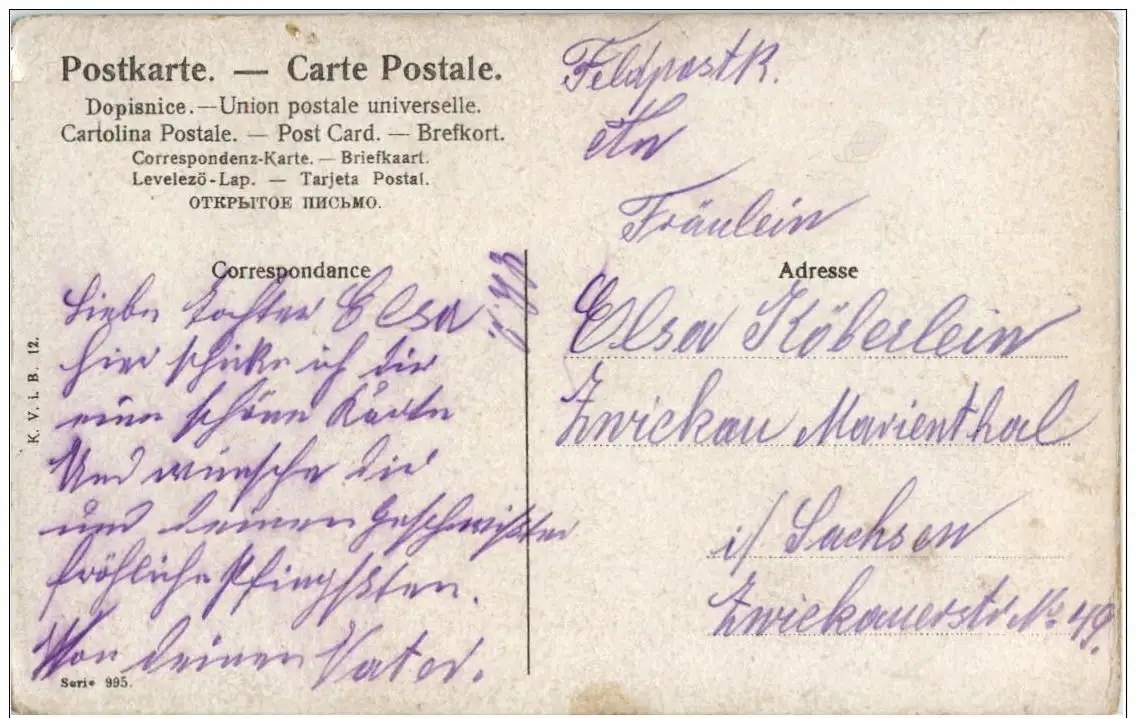 Postkarte. — Carte Postale.
Dopisnice. — Union postale universelle.
Cartolina Postale. — Post Card. — Brefkort.
Correspondenz-Karte. — Briefkaart.
Levelező-Lap. — Tarjeta Postal.
ОТКРЫТОЕ ПИСЬМО.
Correspondance
Liebe Tochter Elsa
hier schicke ich dir
eine schöne Karte
Und wünsche dir
und deinen Geschwister
fröhliche Pfingsten.
Von deinen Vater.
K. V. i. B. 12.
Serie 995.
Feldpostk.
An
Fräulein
Adresse
Elsa Köberlein
Zwickau Marienthal
i/ Sachsen
Zwickauerstr No 49.